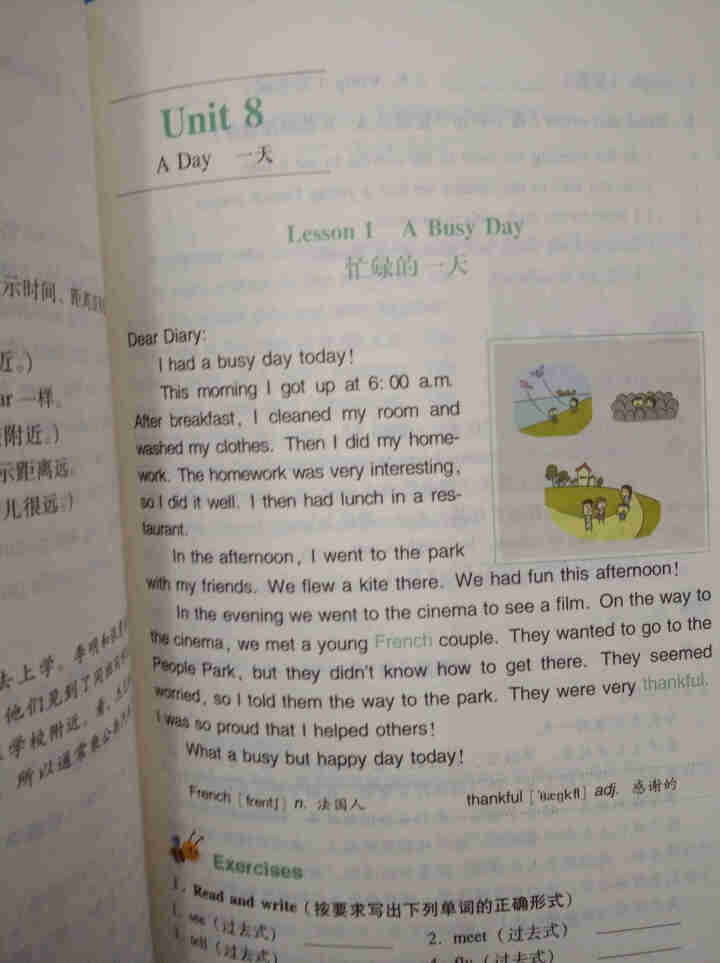 Unit 8
A Day 一天
Lesson 1 A Busy Day
忙碌的一天
Dear Diary:
I had a busy day today!
This morning I got up at 6:00 a.m.
After breakfast, I cleaned my room and
washed my clothes. Then I did my home-
work. The homework was very interesting,
so I did it well. I then had lunch in a res-
taurant.
In the afternoon, I went to the park
with my friends. We flew a kite there. We had fun this afternoon!
In the evening we went to the cinema to see a film. On the way to
the cinema, we met a young French couple. They wanted to go to the
People Park, but they didn't know how to get there. They seemed
worried, so I told them the way to the park. They were very thankful.
I was so proud that I helped others!
What a busy but happy day today!
French [frentʃ] n. 法国人
thankful ['θæŋkfl] adj. 感谢的
Exercises
1. Read and write (按要求写出下列单词的正确形式)
1. see (过去式)
2. meet (过去式)
3. tell (过去式)
4. fly (过去式)
示时间、距离
近。)
ar 一样。
附近。)
示距离远。
儿很远。)
去上学。李明和
他们见到了
学校附近。
所以通常乘公